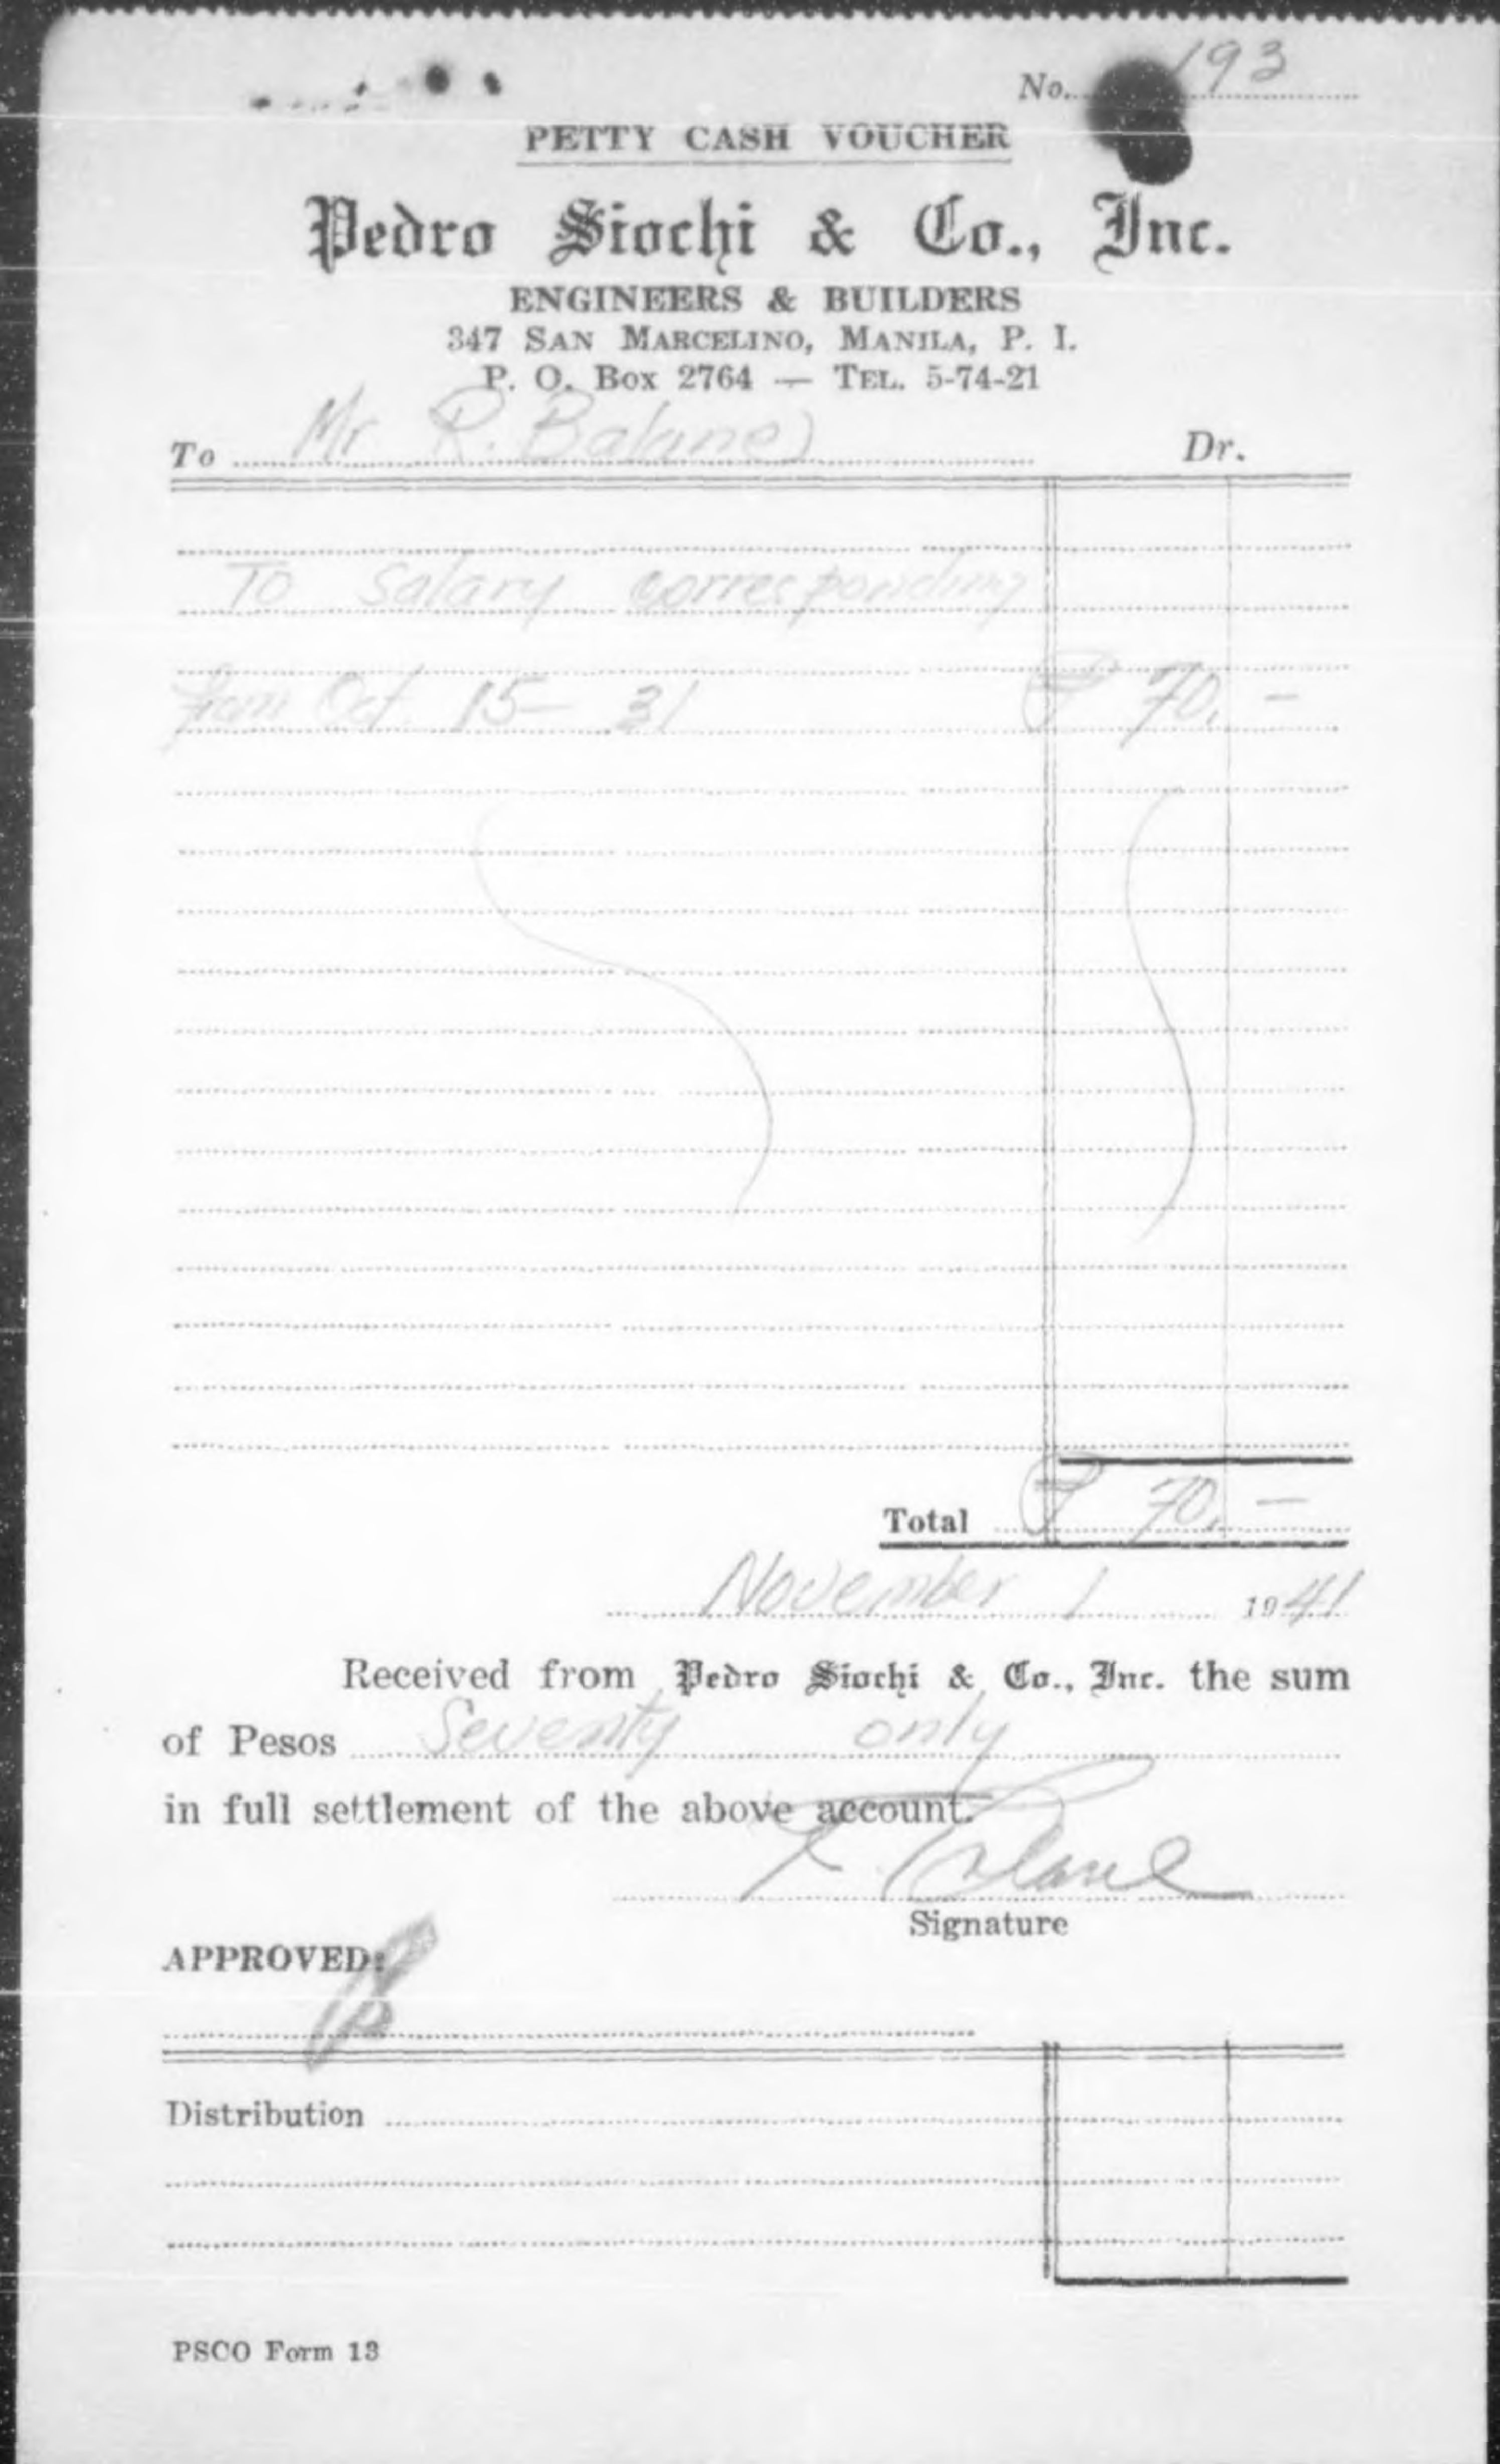 No. 193
PETTY CASH VOUCHER
Pedro Siochi & Co., Inc.
ENGINEERS & BUILDERS
347 SAN MARCELINO, MANILA, P. I.
P. O. Box 2764 — TEL. 5-74-21
To Mr R. Balane Dr.
To salary corresponding
from Oct. 15 - 31 ₱ 70. -
Total ₱ 70. -
November 1 1941
Received from Pedro Siochi & Co., Inc. the sum
of Pesos Seventy only
in full settlement of the above account.
R. Balane
Signature
APPROVED:
Distribution
PSCO Form 13